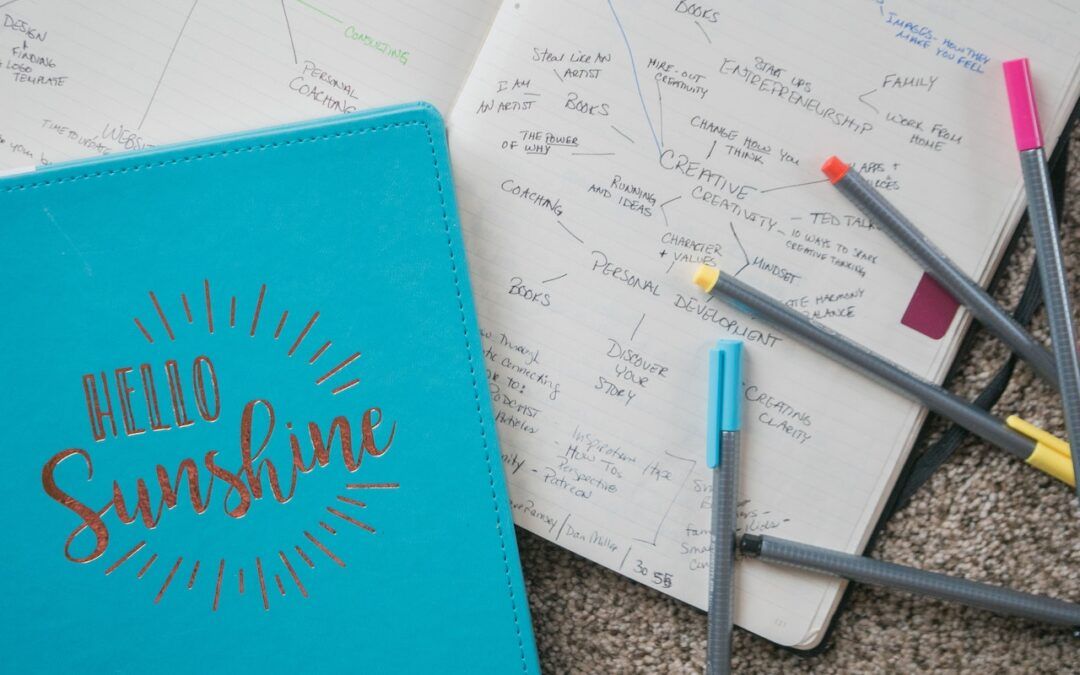 DESIGN
+
FINDING
LOGO
TEMPLATE
CONSULTING
PERSONAL
COACHING
TIME TO UPDATE
HELLO
Sunshine
BOOKS
IMAGES - HOW THEY
MAKE YOU FEEL
Steal Like AN
ARTIST
I AM
AN ARTIST
BOOKS
THE POWER
OF WHY
HIRE-OUT
CREATIVITY
START UPS
ENTREPRENEURSHIP
FAMILY
WORK FROM
HOME
CHANGE HOW YOU
THINK
CREATIVE
CREATIVITY
APPS +
RUNNING
AND IDEAS
TED TALKS
10 WAYS TO SPARK
CREATIVE THINKING
COACHING
CHARACTER
+ VALUES
MINDSET
HARMONY
BALANCE
PERSONAL DEVELOPMENT
BOOKS
DISCOVER
YOUR
STORY
CREATING
CLARITY
Through
Connecting
TO:
PODCAST
Articles
Inspiration/Hope
How Tos
Perspective
Patreon
Ramsey/Dan Miller/30